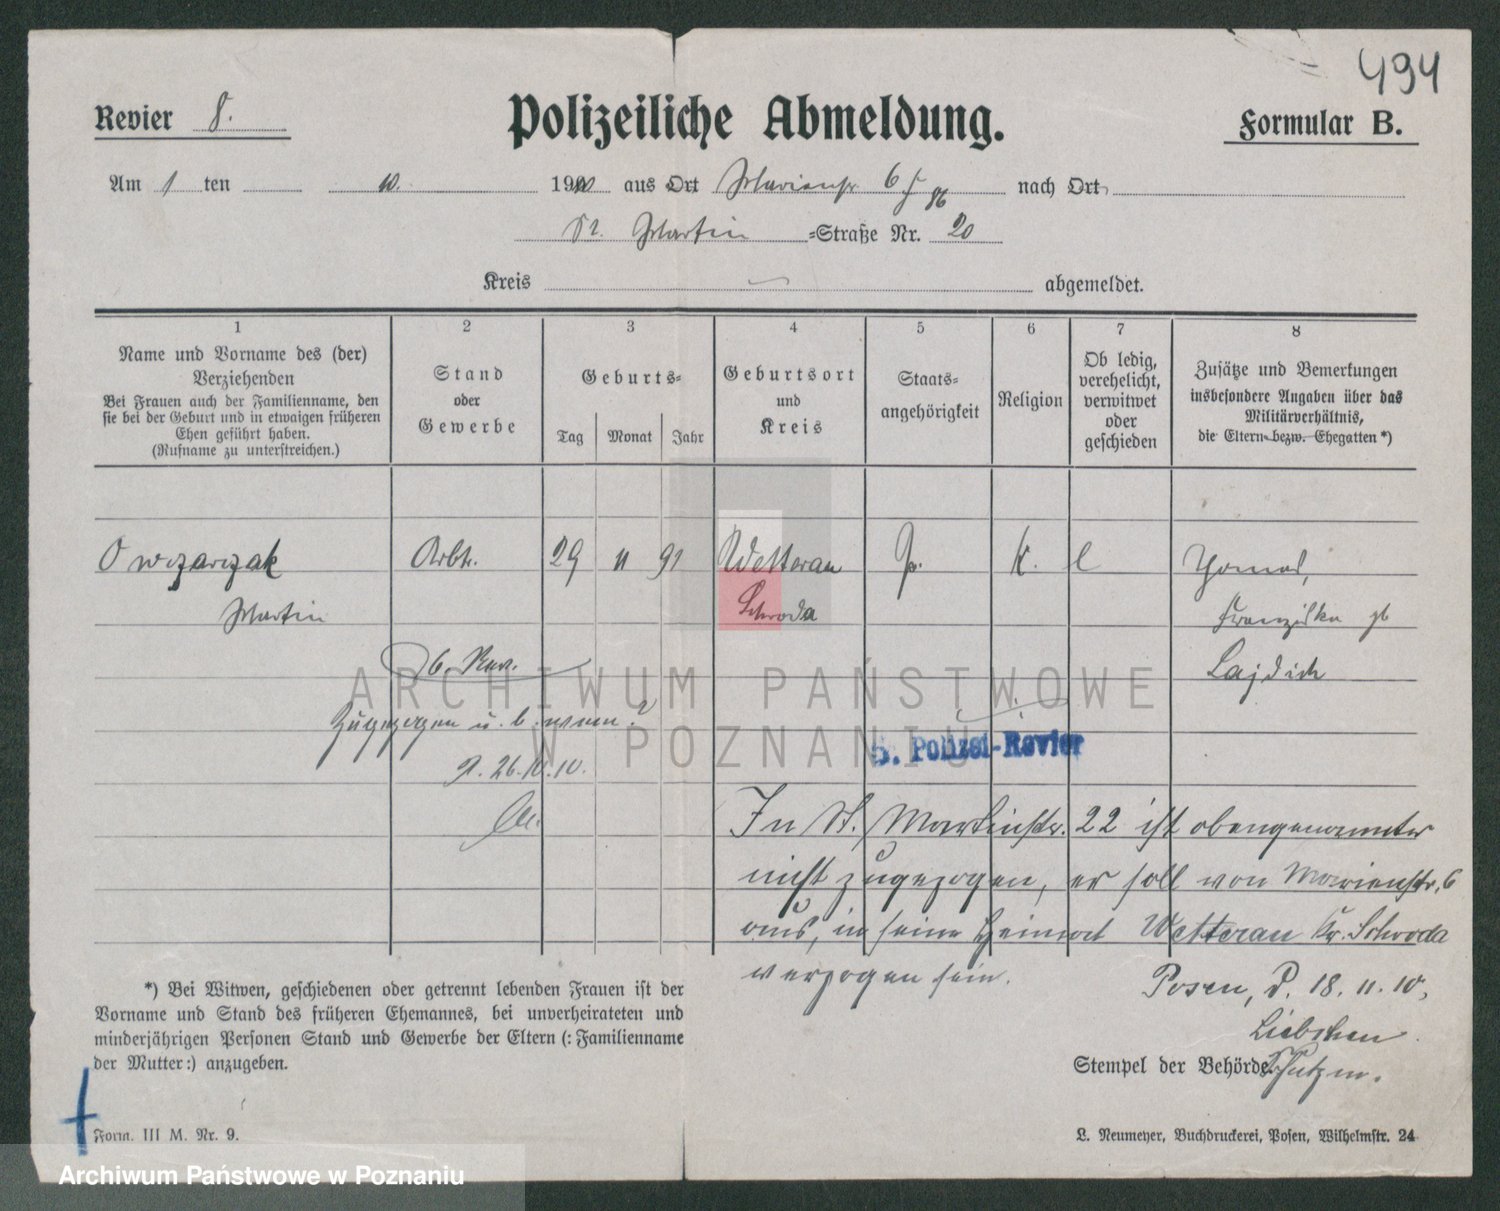 494
Revier 8.
Polizeiliche Abmeldung.
Formular B.
Am 1 ten 10. 1910 aus Ort Marienstr 6 nach Ort
St. Martin =Straße Nr. 20
Kreis abgemeldet.
1 2 3 4 5 6 7 8
Name und Vorname des (der)
Verziehenden
Bei Frauen auch der Familienname, den
sie bei der Geburt und in etwaigen früheren
Ehen geführt haben.
(Rufname zu unterstreichen.)
Stand
oder
Gewerbe
Geburts=
Tag Monat Jahr
Geburtsort
und
Kreis
Staats=
angehörigkeit
Religion
Ob ledig,
verehelicht,
verwitwet
oder
geschieden
Zusätze und Bemerkungen
insbesondere Angaben über das
Militärverhältnis,
die Eltern bezw. Ehegatten*)
Owczarzak Arbtr. 29 11 91 Wetterau P. K. l Thomas,
Martin Schroda Franziska gb
6. Rev. Lajdich
Zugezogen u. b. wem?
P. 26.10.10.
8. Polizei-Revier
In St. Martinstr. 22 ist obengenannter
nicht zugezogen, er soll von Marienstr. 6
aus, in seine Heimat Wetterau Kr. Schroda
verzogen sein.
Posen, d. 18.11.10,
Schutzm.
*) Bei Witwen, geschiedenen oder getrennt lebenden Frauen ist der
Vorname und Stand des früheren Ehemannes, bei unverheirateten und
minderjährigen Personen Stand und Gewerbe der Eltern (: Familienname
der Mutter:) anzugeben.
Stempel der Behörde.
Form. III M. Nr. 9.
L. Neumeyer, Buchdruckerei, Posen, Wilhelmstr. 24
ARCHIWUM PAŃSTWOWE
W POZNANIU
Archiwum Państwowe w Poznaniu